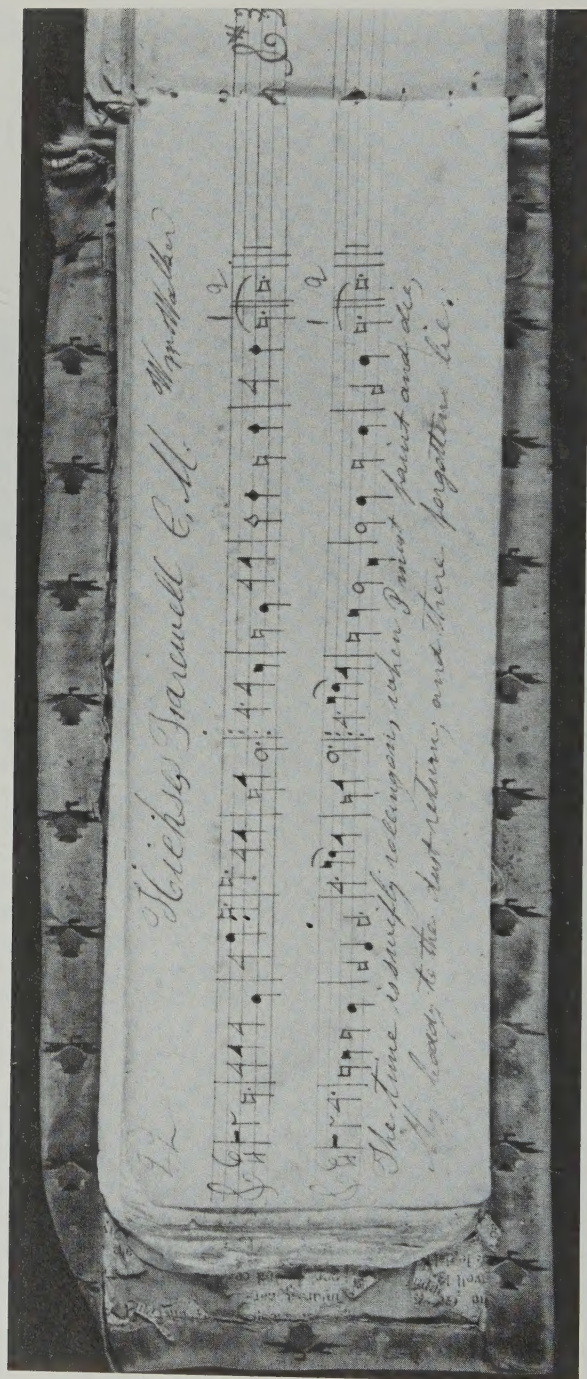 22 Hicks, Farewell C. M. Wm Walker
1 2
1 2
The time is swifly roleingon, when I must faint and die,
My body to the dust return, and there forgotten lie.